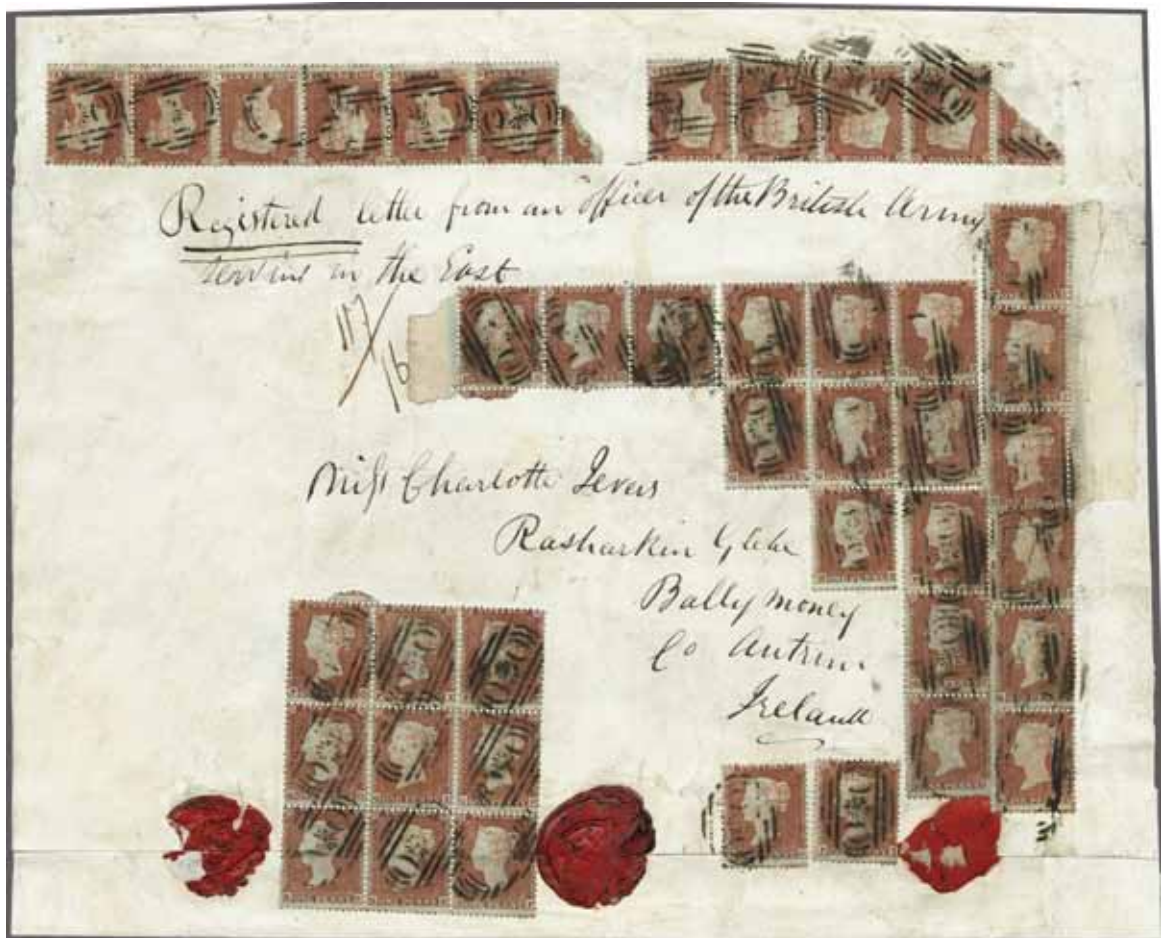 Registered letter from an officer of the British Army
serving in the East
117/16
Miss Charlotte Jevers
Rasharkin Glebe
Ballymoney
Co Antrim
Ireland